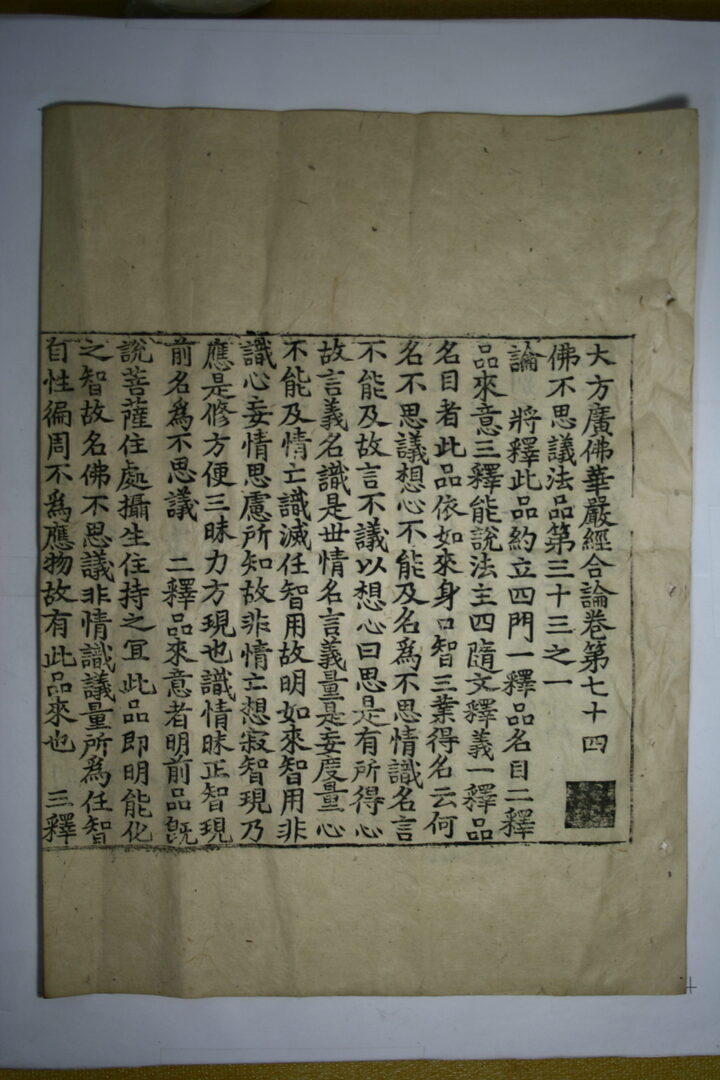 大方廣佛華嚴經合論卷第七十四
佛不思議法品第三十三之一
論　將釋此品約立四門一釋品名目二釋
品來意三釋能說法主四隨文釋義一釋品
名目者此品依如來身口智三業得名云何
名不思議想心不能及名爲不思情識名言
不能及故言不議以想心曰思是有所得心
故言義名識是世情名言義量是妄度量心
不能及情亡識滅任智用故明如來智用非
識心妄情思慮所知故非情亡想寂智現乃
應是修方便三昧力方現也識情昧正智現
前名爲不思議　二釋品來意者明前品旣
說菩薩住處攝生住持之冝此品即明能化
之智故名佛不思議非情識議量所爲任智
自性徧周不爲應物故有此品來也　三釋